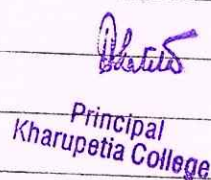 Principal
Kharupetia College